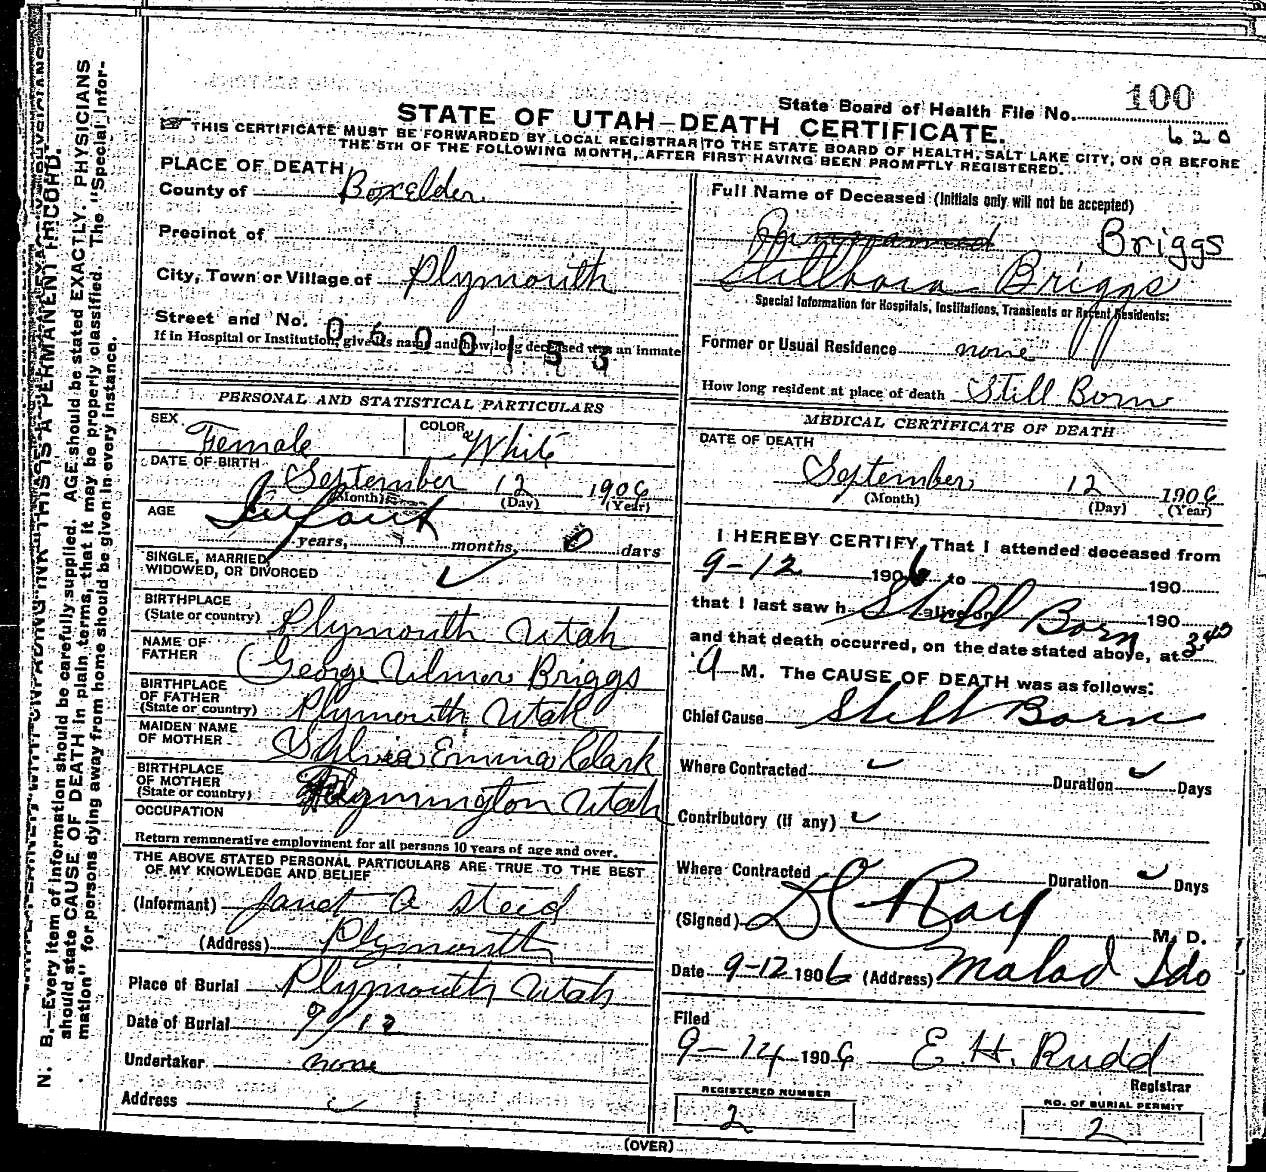 State Board of Health File No. 100
620
STATE OF UTAH—DEATH CERTIFICATE.
☞ THIS CERTIFICATE MUST BE FORWARDED BY LOCAL REGISTRAR TO THE STATE BOARD OF HEALTH, SALT LAKE CITY, ON OR BEFORE
THE 5TH OF THE FOLLOWING MONTH, AFTER FIRST HAVING BEEN PROMPTLY REGISTERED.
N. B.—Every item of information should be carefully supplied. AGE should be stated EXACTLY. PHYSICIANS
should state CAUSE OF DEATH in plain terms, that it may be properly classified. The "Special Infor-
mation" for persons dying away from home should be given in every instance.
THIS IS A PERMANENT RECORD.
PLACE OF DEATH
County of Boxelder
Precinct of
City, Town or Village of Plymouth
Street and No.
0600153
If in Hospital or Institution, give its name and how long deceased was an inmate
PERSONAL AND STATISTICAL PARTICULARS
SEX Female COLOR White
DATE OF BIRTH September 12 1906
(Month) (Day) (Year)
AGE Infant
years, months, 0 days
SINGLE, MARRIED,
WIDOWED, OR DIVORCED ✓
BIRTHPLACE
(State or country) Plymouth Utah
NAME OF
FATHER George Ulmer Briggs
BIRTHPLACE
OF FATHER
(State or country) Plymouth Utah
MAIDEN NAME
OF MOTHER Sylvia Emma Clark
BIRTHPLACE
OF MOTHER
(State or country) Utah
OCCUPATION
Return remunerative employment for all persons 10 years of age and over.
THE ABOVE STATED PERSONAL PARTICULARS ARE TRUE TO THE BEST
OF MY KNOWLEDGE AND BELIEF
(Informant) Janet A Steed
(Address) Plymouth
Place of Burial Plymouth Utah
Date of Burial 9/12
Undertaker none
Address
Full Name of Deceased (Initials only will not be accepted)
Briggs
Stillborn Briggs
Special Information for Hospitals, Institutions, Transients or Recent Residents:
Former or Usual Residence none
How long resident at place of death Still Born
MEDICAL CERTIFICATE OF DEATH
DATE OF DEATH
September 12 1906
(Month) (Day) (Year)
I HEREBY CERTIFY, That I attended deceased from
9-12 1906 to 190
that I last saw h alive on 190
Still Born
and that death occurred, on the date stated above, at 3:40
A M. The CAUSE OF DEATH was as follows:
Chief Cause Still Born
Where Contracted ✓ Duration ✓ Days
Contributory (if any) ✓
Where Contracted Duration ✓ Days
(Signed) D C Ray M. D.
Date 9-12 1906 (Address) Malad Ido
Filed
9-14 1906 E. H. Rudd
Registrar
REGISTERED NUMBER
2
NO. OF BURIAL PERMIT
2
(OVER)